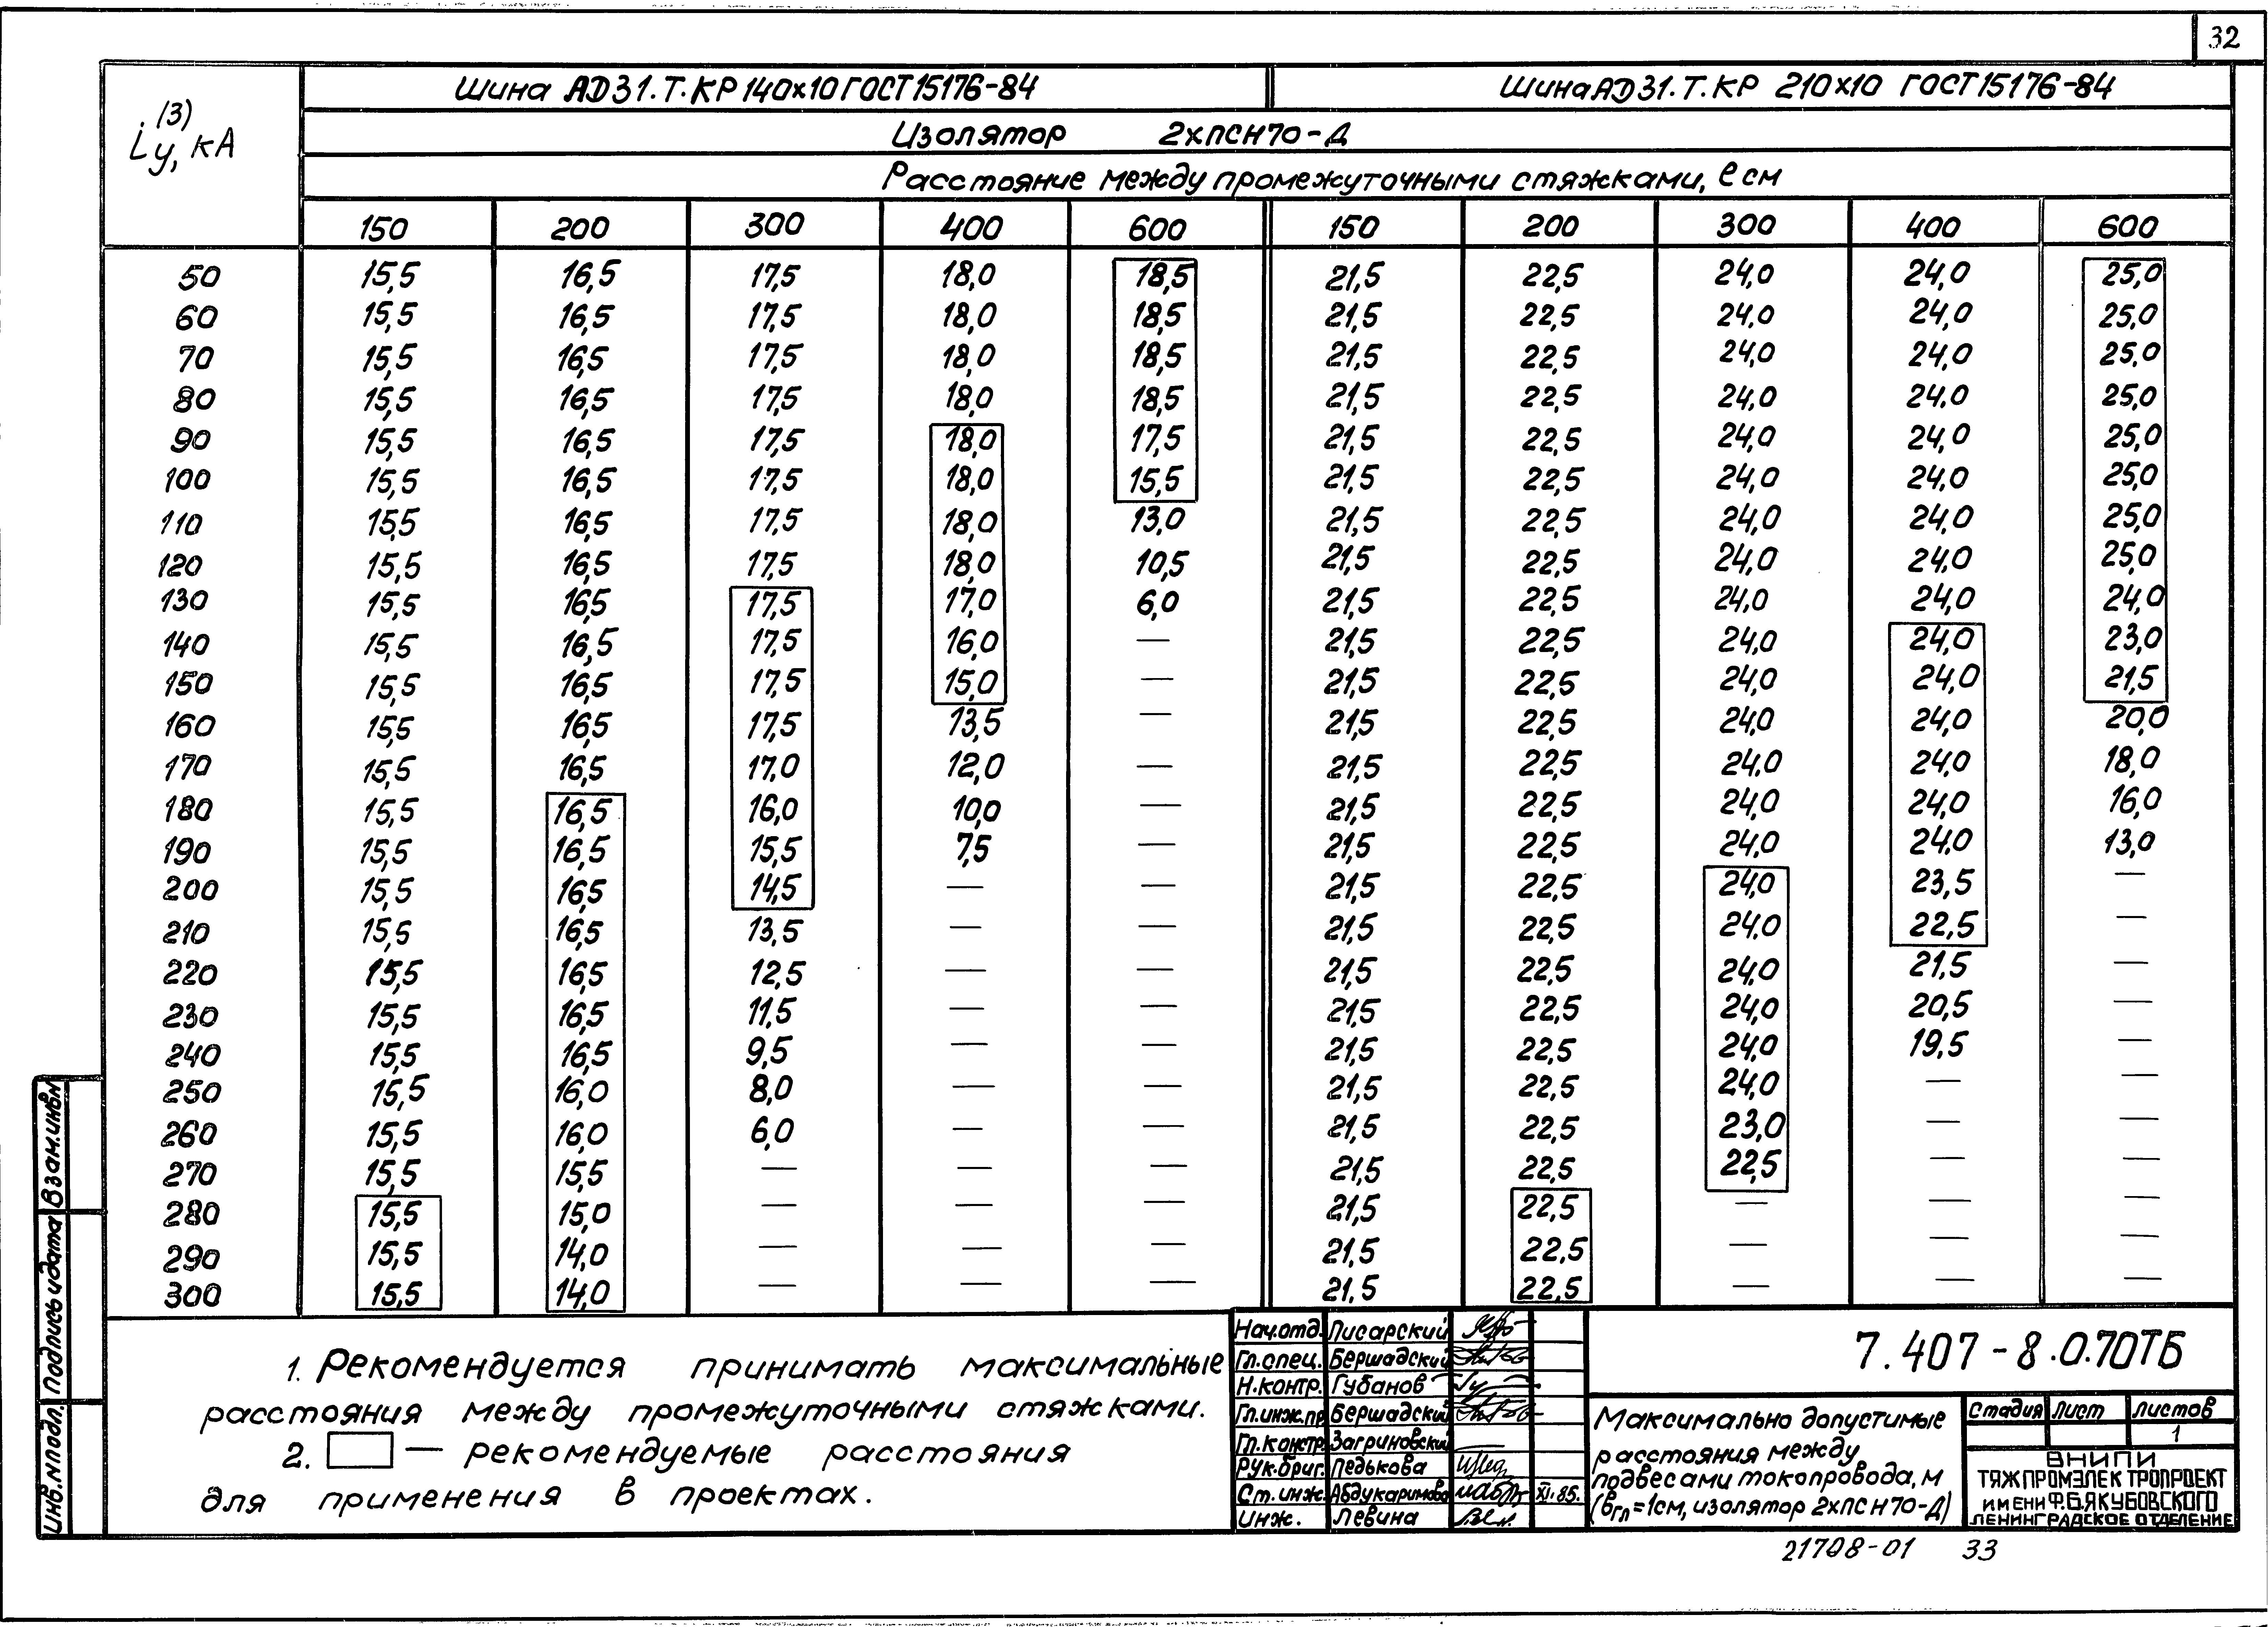 32
i(3)у, кА
Шина АД31.Т.КР 140х10 ГОСТ 15176-84 Шина АД31.Т.КР 210х10 ГОСТ 15176-84
Изолятор 2хПСН70-Д
Расстояние между промежуточными стяжками, ℓ см
150 200 300 400 600 150 200 300 400 600
50 15,5 16,5 17,5 18,0 18,5 21,5 22,5 24,0 24,0 25,0
60 15,5 16,5 17,5 18,0 18,5 21,5 22,5 24,0 24,0 25,0
70 15,5 16,5 17,5 18,0 18,5 21,5 22,5 24,0 24,0 25,0
80 15,5 16,5 17,5 18,0 18,5 21,5 22,5 24,0 24,0 25,0
90 15,5 16,5 17,5 18,0 17,5 21,5 22,5 24,0 24,0 25,0
100 15,5 16,5 17,5 18,0 15,5 21,5 22,5 24,0 24,0 25,0
110 15,5 16,5 17,5 18,0 13,0 21,5 22,5 24,0 24,0 25,0
120 15,5 16,5 17,5 18,0 10,5 21,5 22,5 24,0 24,0 25,0
130 15,5 16,5 17,5 17,0 6,0 21,5 22,5 24,0 24,0 24,0
140 15,5 16,5 17,5 16,0 — 21,5 22,5 24,0 24,0 23,0
150 15,5 16,5 17,5 15,0 — 21,5 22,5 24,0 24,0 21,5
160 15,5 16,5 17,5 13,5 — 21,5 22,5 24,0 24,0 20,0
170 15,5 16,5 17,0 12,0 — 21,5 22,5 24,0 24,0 18,0
180 15,5 16,5 16,0 10,0 — 21,5 22,5 24,0 24,0 16,0
190 15,5 16,5 15,5 7,5 — 21,5 22,5 24,0 24,0 13,0
200 15,5 16,5 14,5 — — 21,5 22,5 24,0 23,5 —
210 15,5 16,5 13,5 — — 21,5 22,5 24,0 22,5 —
220 15,5 16,5 12,5 — — 21,5 22,5 24,0 21,5 —
230 15,5 16,5 11,5 — — 21,5 22,5 24,0 20,5 —
240 15,5 16,5 9,5 — — 21,5 22,5 24,0 19,5 —
250 15,5 16,0 8,0 — — 21,5 22,5 24,0 — —
260 15,5 16,0 6,0 — — 21,5 22,5 23,0 — —
270 15,5 15,5 — — — 21,5 22,5 22,5 — —
280 15,5 15,0 — — — 21,5 22,5 — — —
290 15,5 14,0 — — — 21,5 22,5 — — —
300 15,5 14,0 — — — 21.5 22,5 — — —
1. Рекомендуется принимать максимальные
расстояния между промежуточными стяжками.
2. — рекомендуемые расстояния
для применения в проектах.
Инв.№подл. Подпись и дата Взам.инв№
Нач.отд. Писарский
Гл.спец. Бершадский
Н.контр. Губанов
Гл.инж.пр. Бершадский
Гл.констр. Загриновский
Рук.бриг. Педькова
Ст.инж. Абдукаримова XI.85.
Инж. Левина
7.407-8.0.70ТБ
Максимально допустимые
расстояния между
подвесами токопровода, м
(вгл=1см, изолятор 2хПСН70-Д)
Стадия Лист Листов
1
ВНИПИ
ТЯЖПРОМЭЛЕКТРОПРОЕКТ
ИМЕНИ Ф.Б.ЯКУБОВСКОГО
ЛЕНИНГРАДСКОЕ ОТДЕЛЕНИЕ
21708-01 33